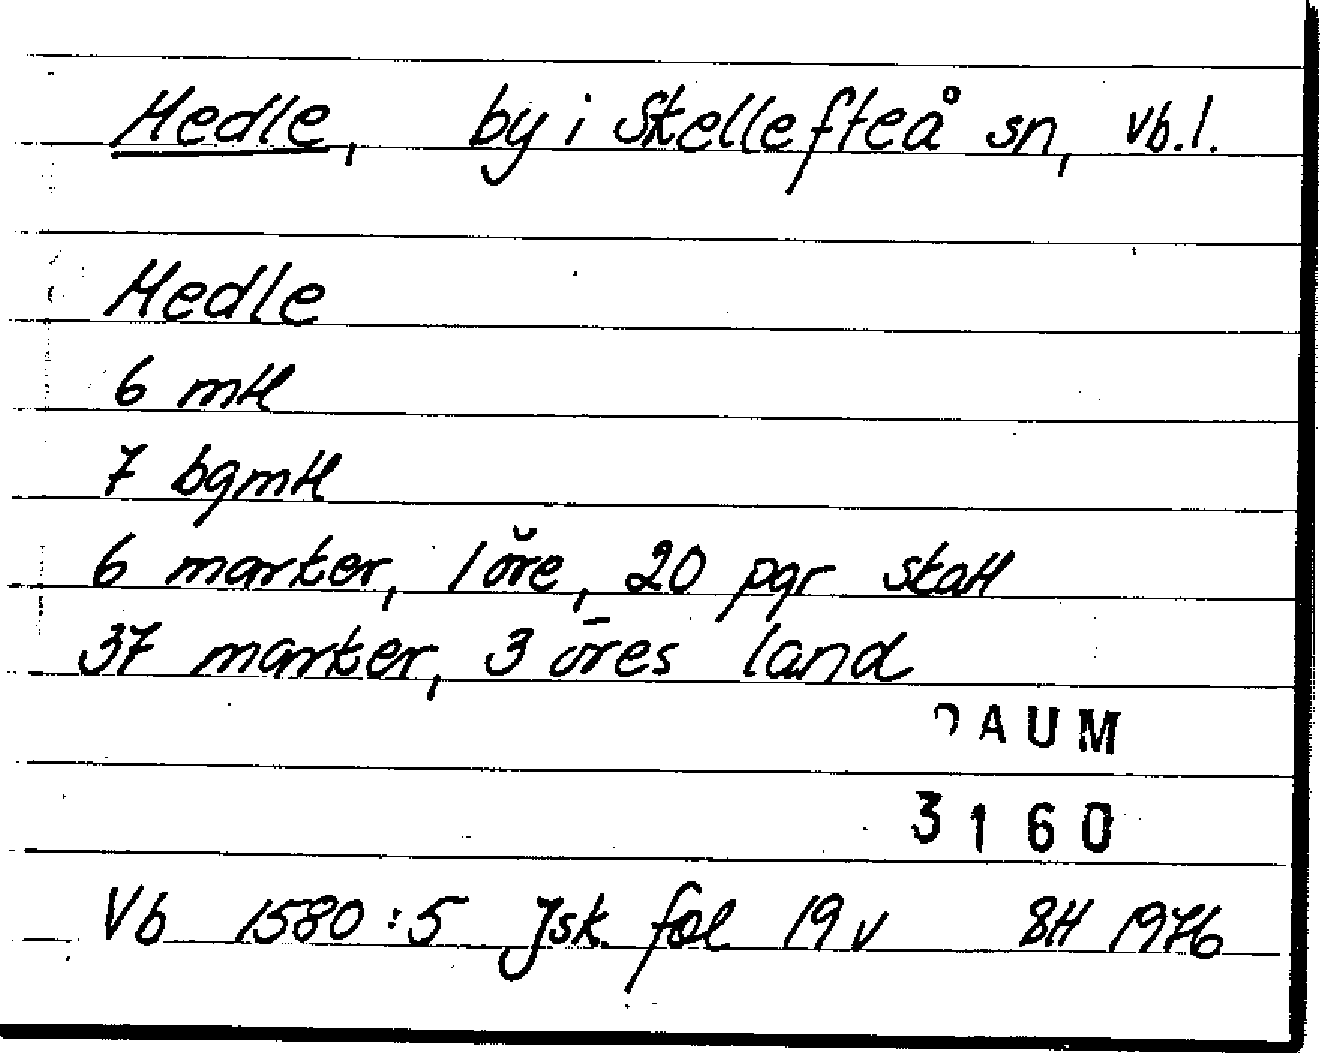 Medle, by i Skellefteå sn, Vb.l.
Medle
6 mtl
7 bgmtl
6 marker, 1 öre, 20 pgr skatt
37 marker, 3 öres land
DAUM
3160
Vb 1580:5 Jsk. fol 19 v BH 1976